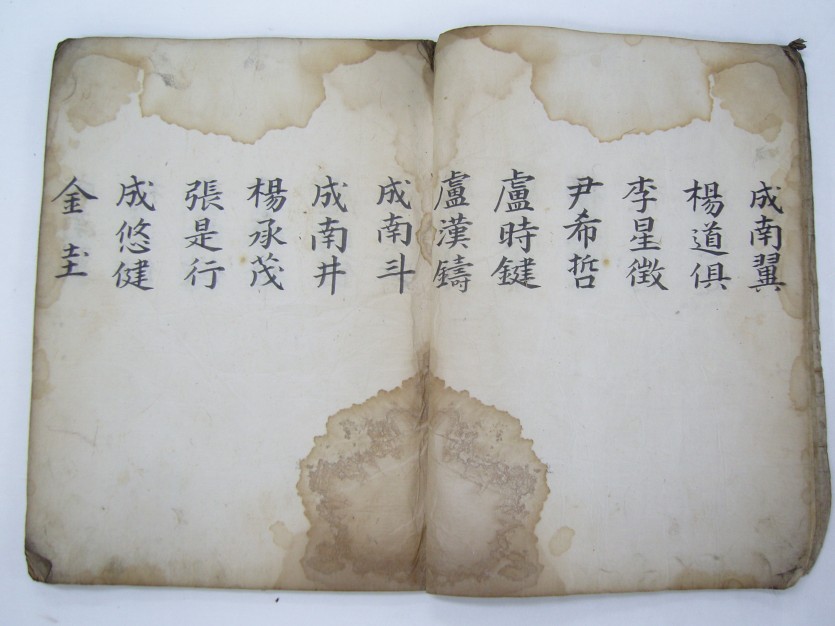 成南翼
楊道俱
李星徵
尹希哲
盧時鍵
盧漢鑄
成南斗
成南井
楊承茂
張是行
成悠健
金圡